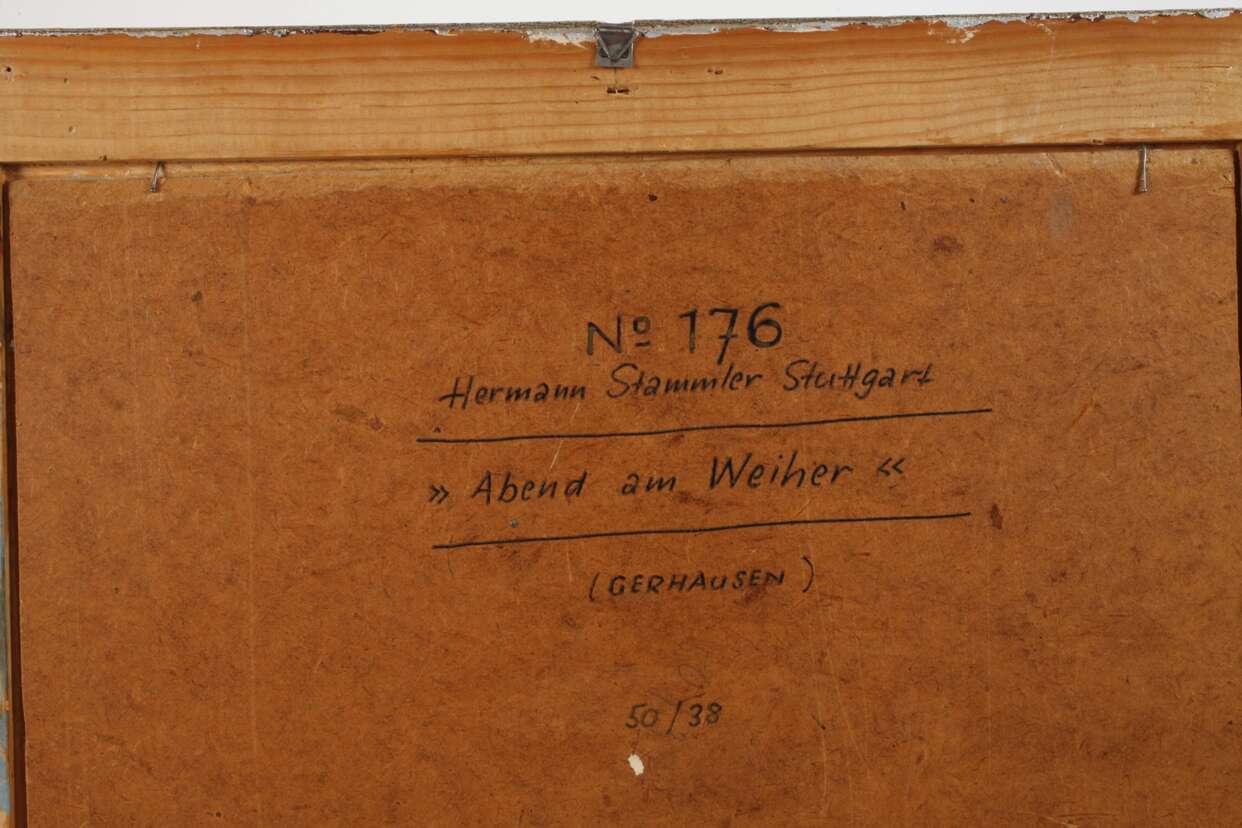 Nº 176
Hermann Stammler Stuttgart
» Abend am Weiher «
(GERHAUSEN)
50/38